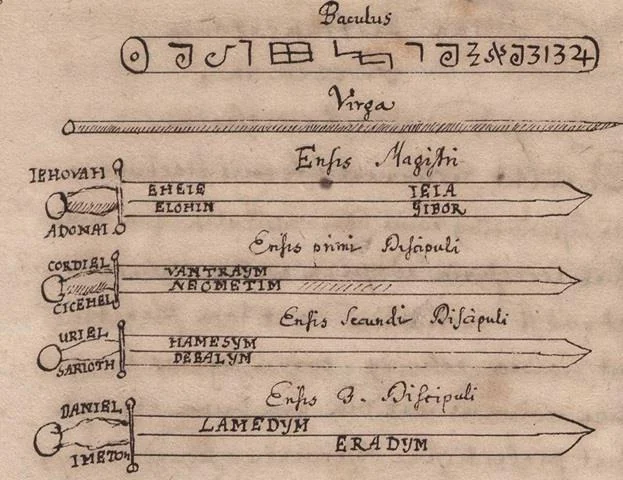 Baculus
Virga
Ensis Magistri
IEHOVAH
EHEIE IEIA
ELOHIN GIBOR
ADONAI
Ensis primi Discipuli
CORDIEL
VANTRAYM
NEOMETIM
CICEHEL
Ensis Secundi Discipuli
URIEL
HAMESYM
DEBALYM
SARIOTH
Ensis 3. Discipuli
DANIEL
LAMEDYM
ERADYM
IMETON